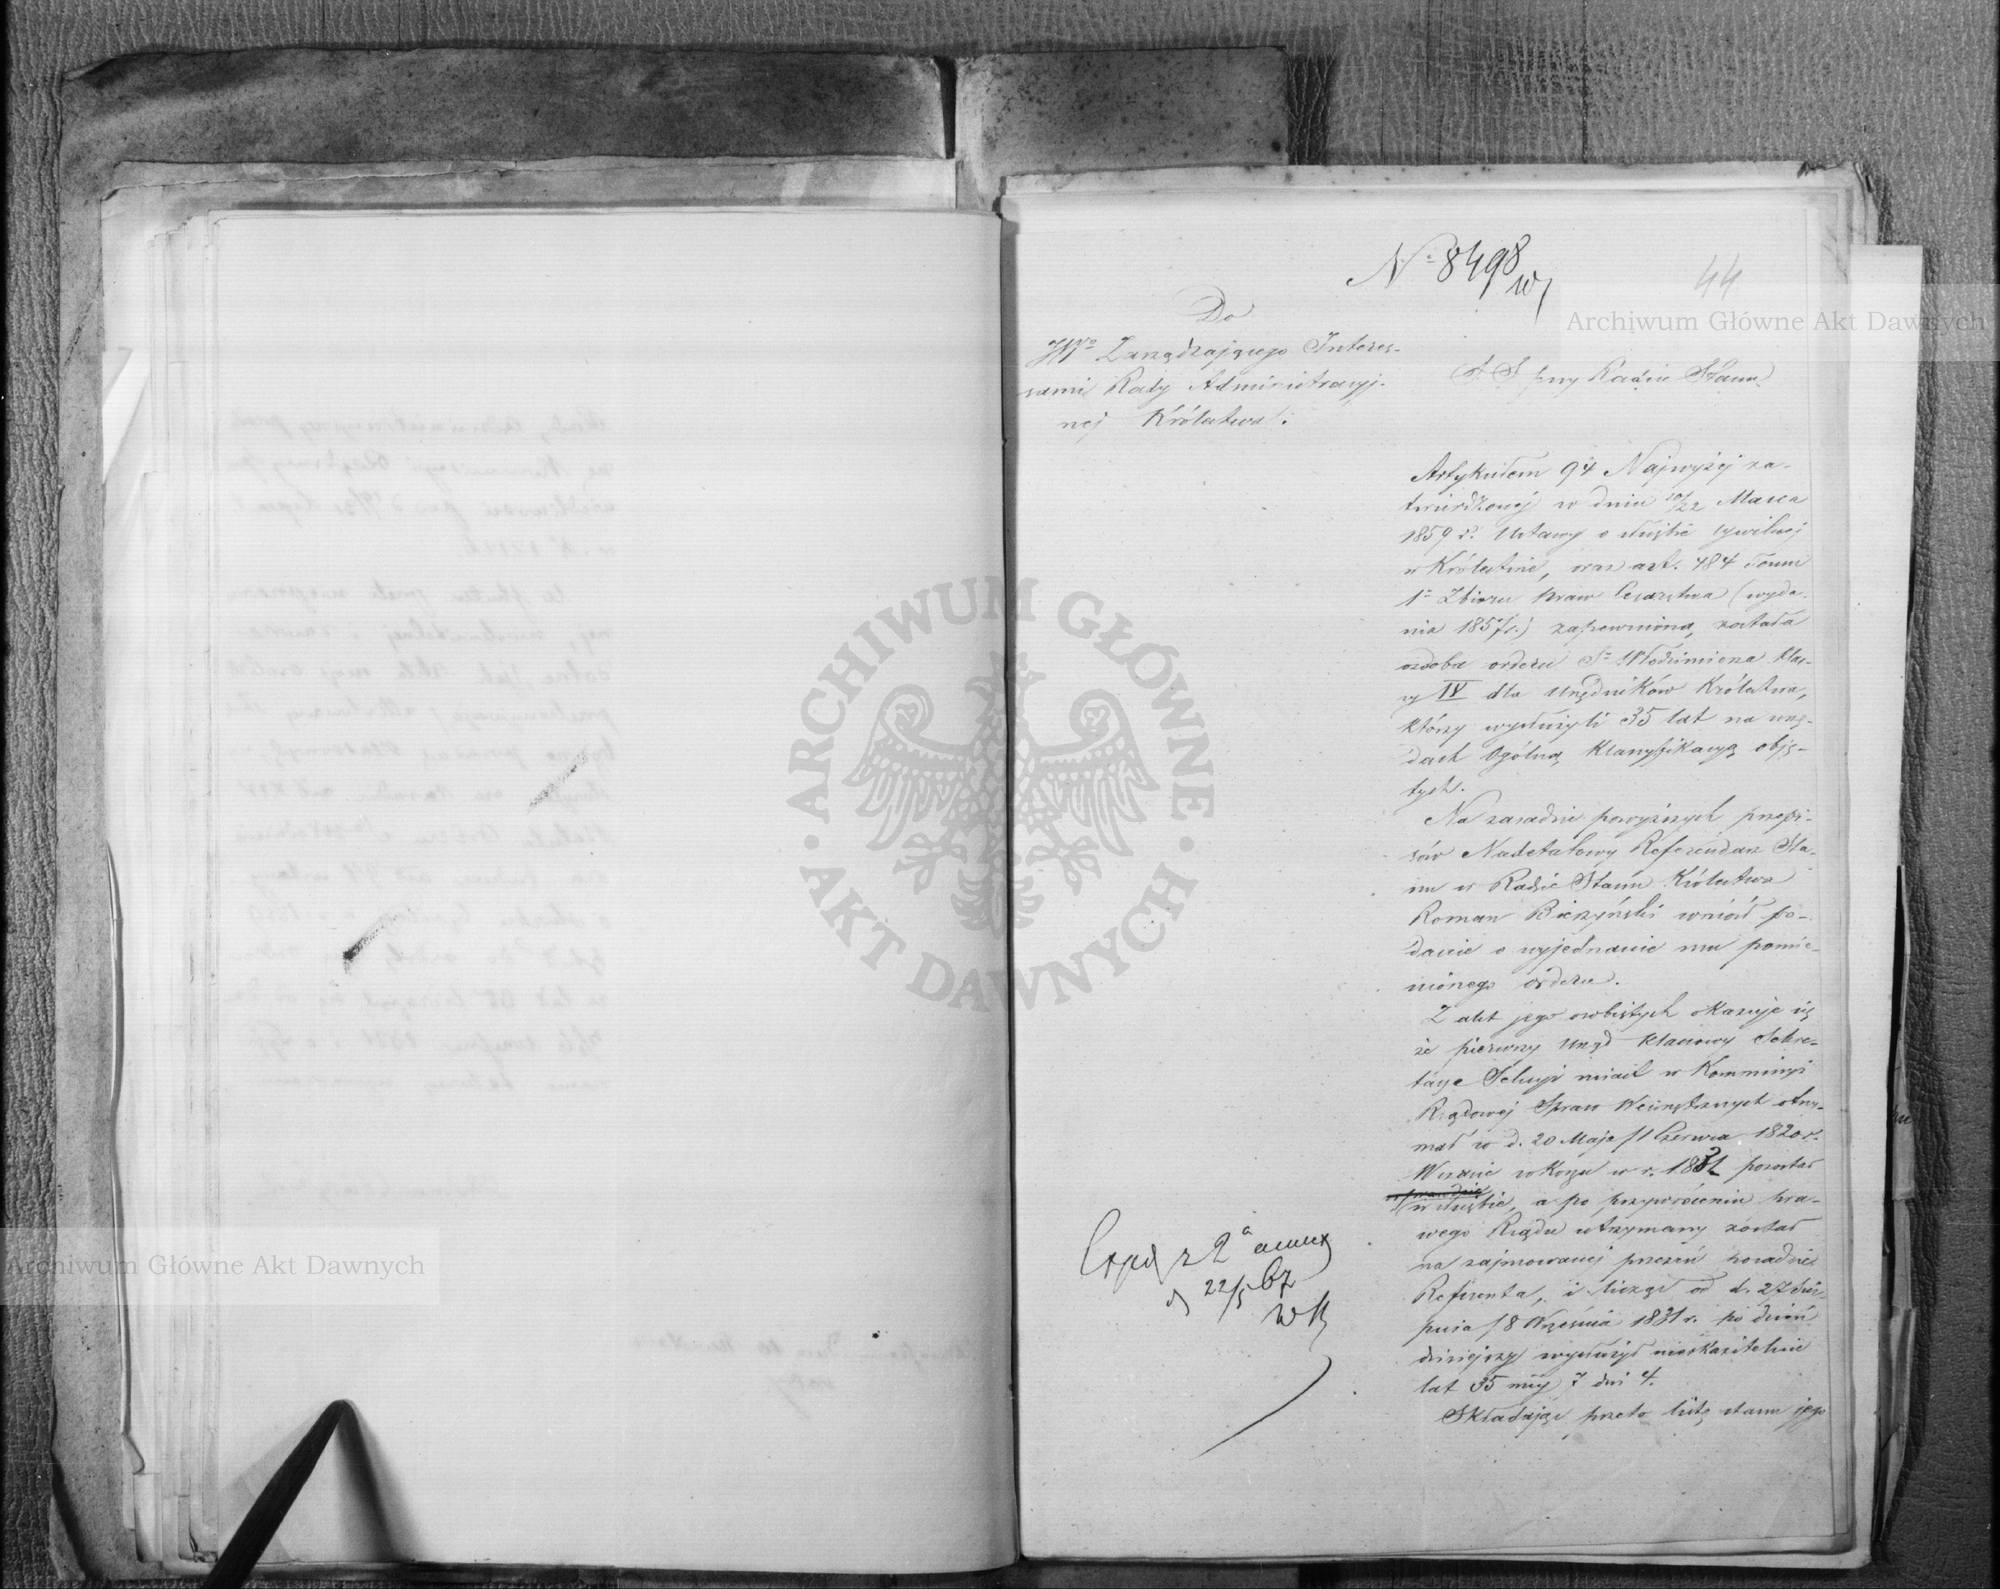 № 8498
44
Do
JW° Zarządzającego Interes-
sami Rady Administracyj-
nej Królestwa.
S. S. przy Radzie Stanu
Artykułem 94 Najwyżej za-
twierdzonej w dniu 10/22 Marca
1859 r. Ustawy o służbie cywilnej
w Królestwie, oraz art. 484 Tomu
1° Zbioru Praw Cesarstwa (wyda-
nia 1857 r.) zapewnioną została
ozdoba orderu Sº Włodzimierza kla-
sy IV dla Urzędników Królestwa,
którzy wysłużyli 35 lat na urzę-
dach Ogólną Klassyfikacyą obję-
tych.
Na zasadzie powyższych przepi-
sów Nadetatowy Referendarz Sta-
nu w Radzie Stanu Królestwa
Roman Bierzyński wniósł po-
danie o wyjednanie mu pomie-
nionego orderu.
Z akt jego osobistych okazuje się
że pierwszy Urząd klassowy Sekre-
tarza Sekcyi miast w Kommissyi
Rządowej Spraw Wewnętrznych otrzy-
mał w d. 20 Maja/1 Czerwca 1820 r.
W czasie rokoszu w r. 1831 pozostał
w służbie, a po przywróceniu pra-
wego Rządu utrzymany został
na zajmowanej przezeń posadzie
Referenta, i licząc od d. 27 Sier-
pnia/8 Września 1831 r. po dzień
dzisiejszy wysłużył nieskazitelnie
lat 35 mcy 7 dni 4.
Składając przeto listę stanu jego
Exped z 2ª annex
d 22/5 67
Archiwum Główne Akt Dawnych
Archiwum Główne Akt Dawnych
ARCHIWUM GŁÓWNE
AKT DAWNYCH